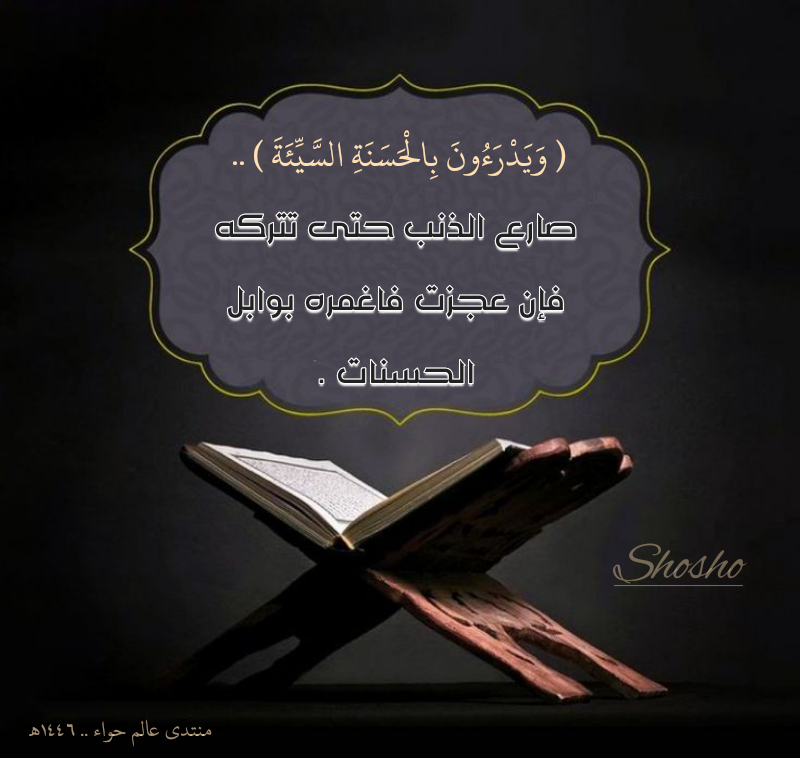 ( وَيَدْرَءُونَ بِالْحَسَنَةِ السَّيِّئَةَ ) ..
صارع الذنب حتى تتركه
فإن عجزت فاغمره بوابل
الحسنات .
Shosho
منتدى عالم حواء .. ١٤٤٦هـ